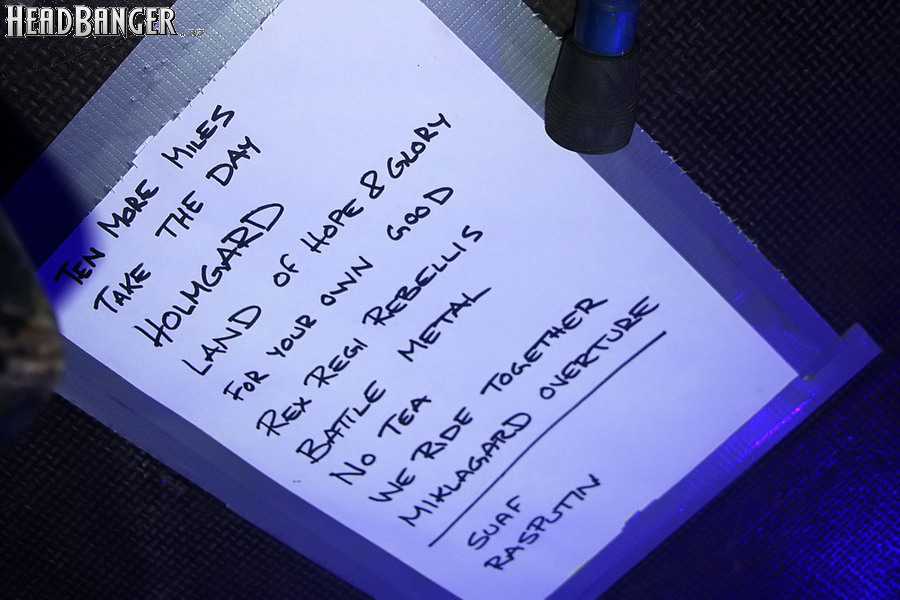 HEADBANGER
TEN MORE MILES
TAKE THE DAY
HOLMGARD
LAND OF HOPE & GLORY
FOR YOUR OWN GOOD
REX REGI REBELLIS
BATTLE METAL
NO TEA
WE RIDE TOGETHER
MIKLAGARD OVERTURE
SUAF
RASPUTIN